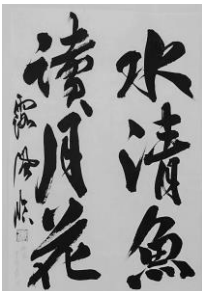 水清魚
讀月花